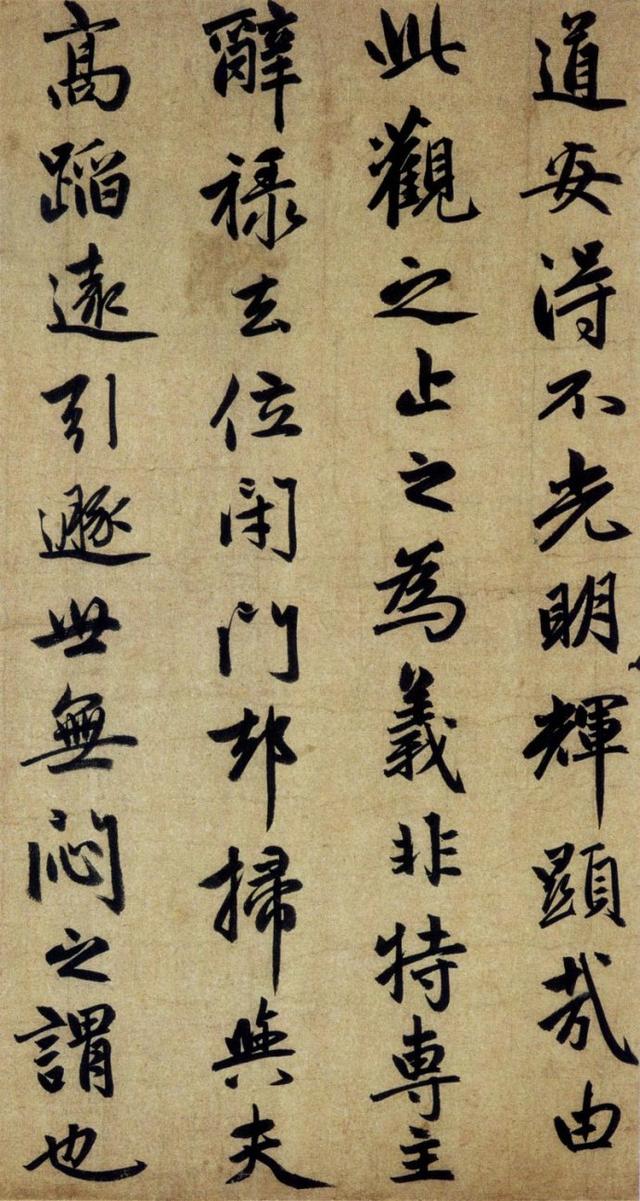 道安得不光明輝顯哉由
此觀之止之為義非特專主
辭祿去位閑門却掃與夫
高蹈遠引遯世無悶之謂也